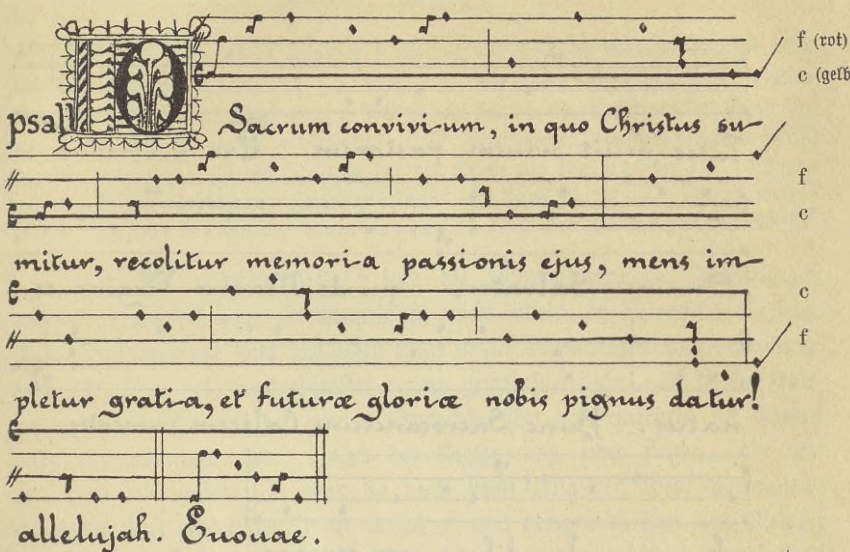 f (rot)
c (gelb
psall O Sacrum convivi-um, in quo Christus su-
f
c
mitur, recolitur memori-a passionis ejus, mens im-
c
f
pletur grati-a, et futuræ gloriæ nobis pignus datur!
allelujah. Euouae.